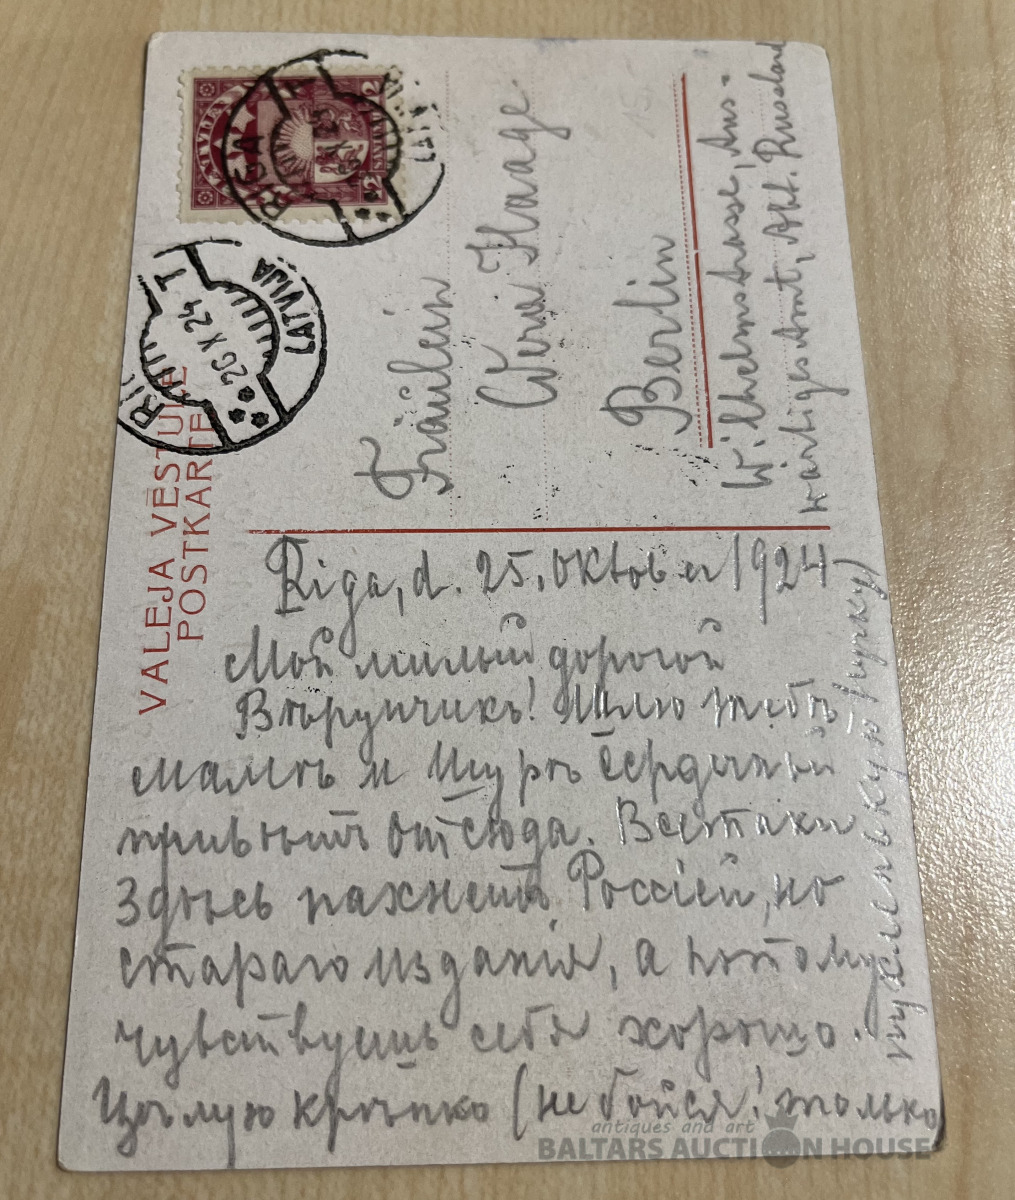 VALEJA VĒSTULE
POSTKARTE
LATVIJA
2
RIGA
RIGA
26 X 24
LATVIJA
Fräulein
Wera Haage
Berlin
Wilhelmstrasse, Aus-
wärtiges Amt, Abt. Russland
Riga, d. 25, Oktober 1924
Мой милый дорогой
Вѣрунчикъ! Шлю тебѣ
мамѣ и Шурѣ сердечный
привѣтъ отсюда. Всетаки
здѣсь пахнетъ Россіей, но
стараго изданія, а потому
чувствуешь себя хорошо.
Цѣлую крѣпко (не бойся! только
antiques and art
BALTARS AUCTION HOUSE